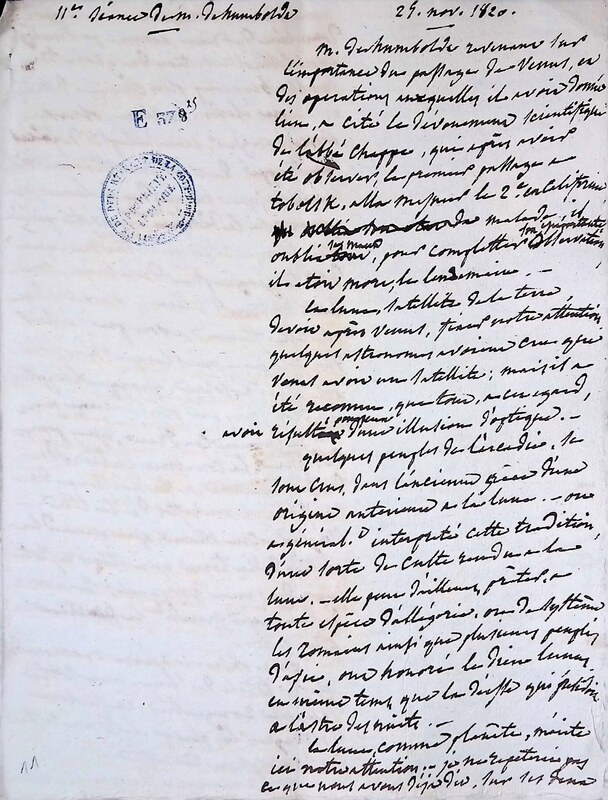 11e Séance de m. de humboldt 25. nov. 1820.
m. de humboldt revenant sur
l'importance du passage de Venus, et
des operations auxquelles il avoit donné
lieu, a cité le dévouement scientifique
de l'abbé Chappe, qui après avoir
été observer, le premier passage a
tobolsk, alla mesurer le 2e en Californie
malade, il
oublia ses maux, pour completter son importante observation
il etoit mort, le lendemain. —
la lune, satellite de la terre
devoit après Venus, fixer notre attention,
quelques astronomes avoient cru que
Venus avoit un satellite; mais il a
été reconnu, que tout, a cet egard,
avoit résulté d'une illusion d'optique. —
quelques peuples de l'arcadie, se
sont crus, dans l'ancienne grèce d'une
origine anterieure a la lune. — on
a général.t interprété cette tradition
d'une sorte de culte rendu a la
lune. — elle peut d'ailleurs prêter, a
toute espèce d'allégorie, ou de système
les romains ainsi que plusieurs peuples
d'asie, ont honoré le dieu lunus,
en même temps que la déesse qui préside
a l'astre des nuits. —
la lune, comme planète, mérite
ici notre attention. — je ne repeterai pas
ce que nous avons déjà dit, sur les deux
E 578 15
11